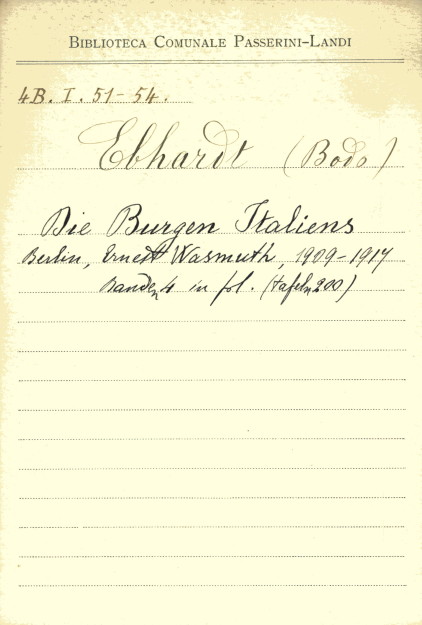 BIBLIOTECA COMUNALE PASSERINI-LANDI
4B. I. 51-54.
Ebhardt (Bodo)
Die Burgen Italiens
Berlin, Ernest Wasmuth, 1909-1917
Banden 4 in fol. (Tafeln 200)